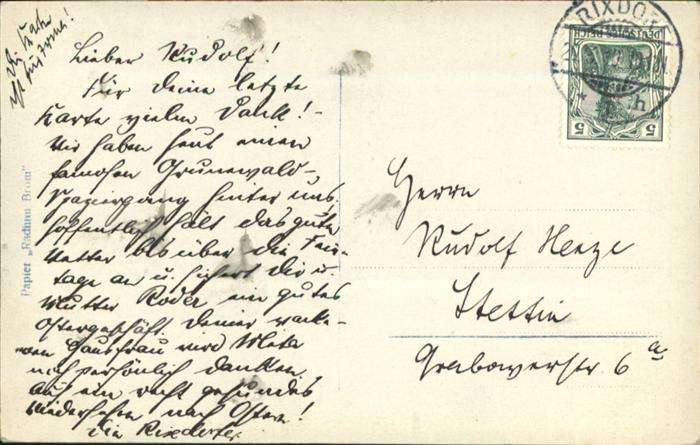 Ist die Karte
für Erna!
Lieber Rudolf!
Für Deine letzte
Karte vielen Dank! –
Wir haben heut einen
famosen Grunewald-
spaziergang hinter uns.
Hoffentlich hält das gute
Wetter bis über die Feier-
tage an u. sichert Dir u.
Mutter Roder ein gutes
Ostergeschäft. Deiner
Hausfrau werd Meta
noch persönlich danken.
Auf ein recht gesundes
Wiedersehen nach Ostern!
Die Rixdorfer.
Papier „Radium Brom"
RIXDORF
DEUTSCHES REICH
5 5
Herrn
Rudolf Henze
Stettin
Grabowerstr. 6a